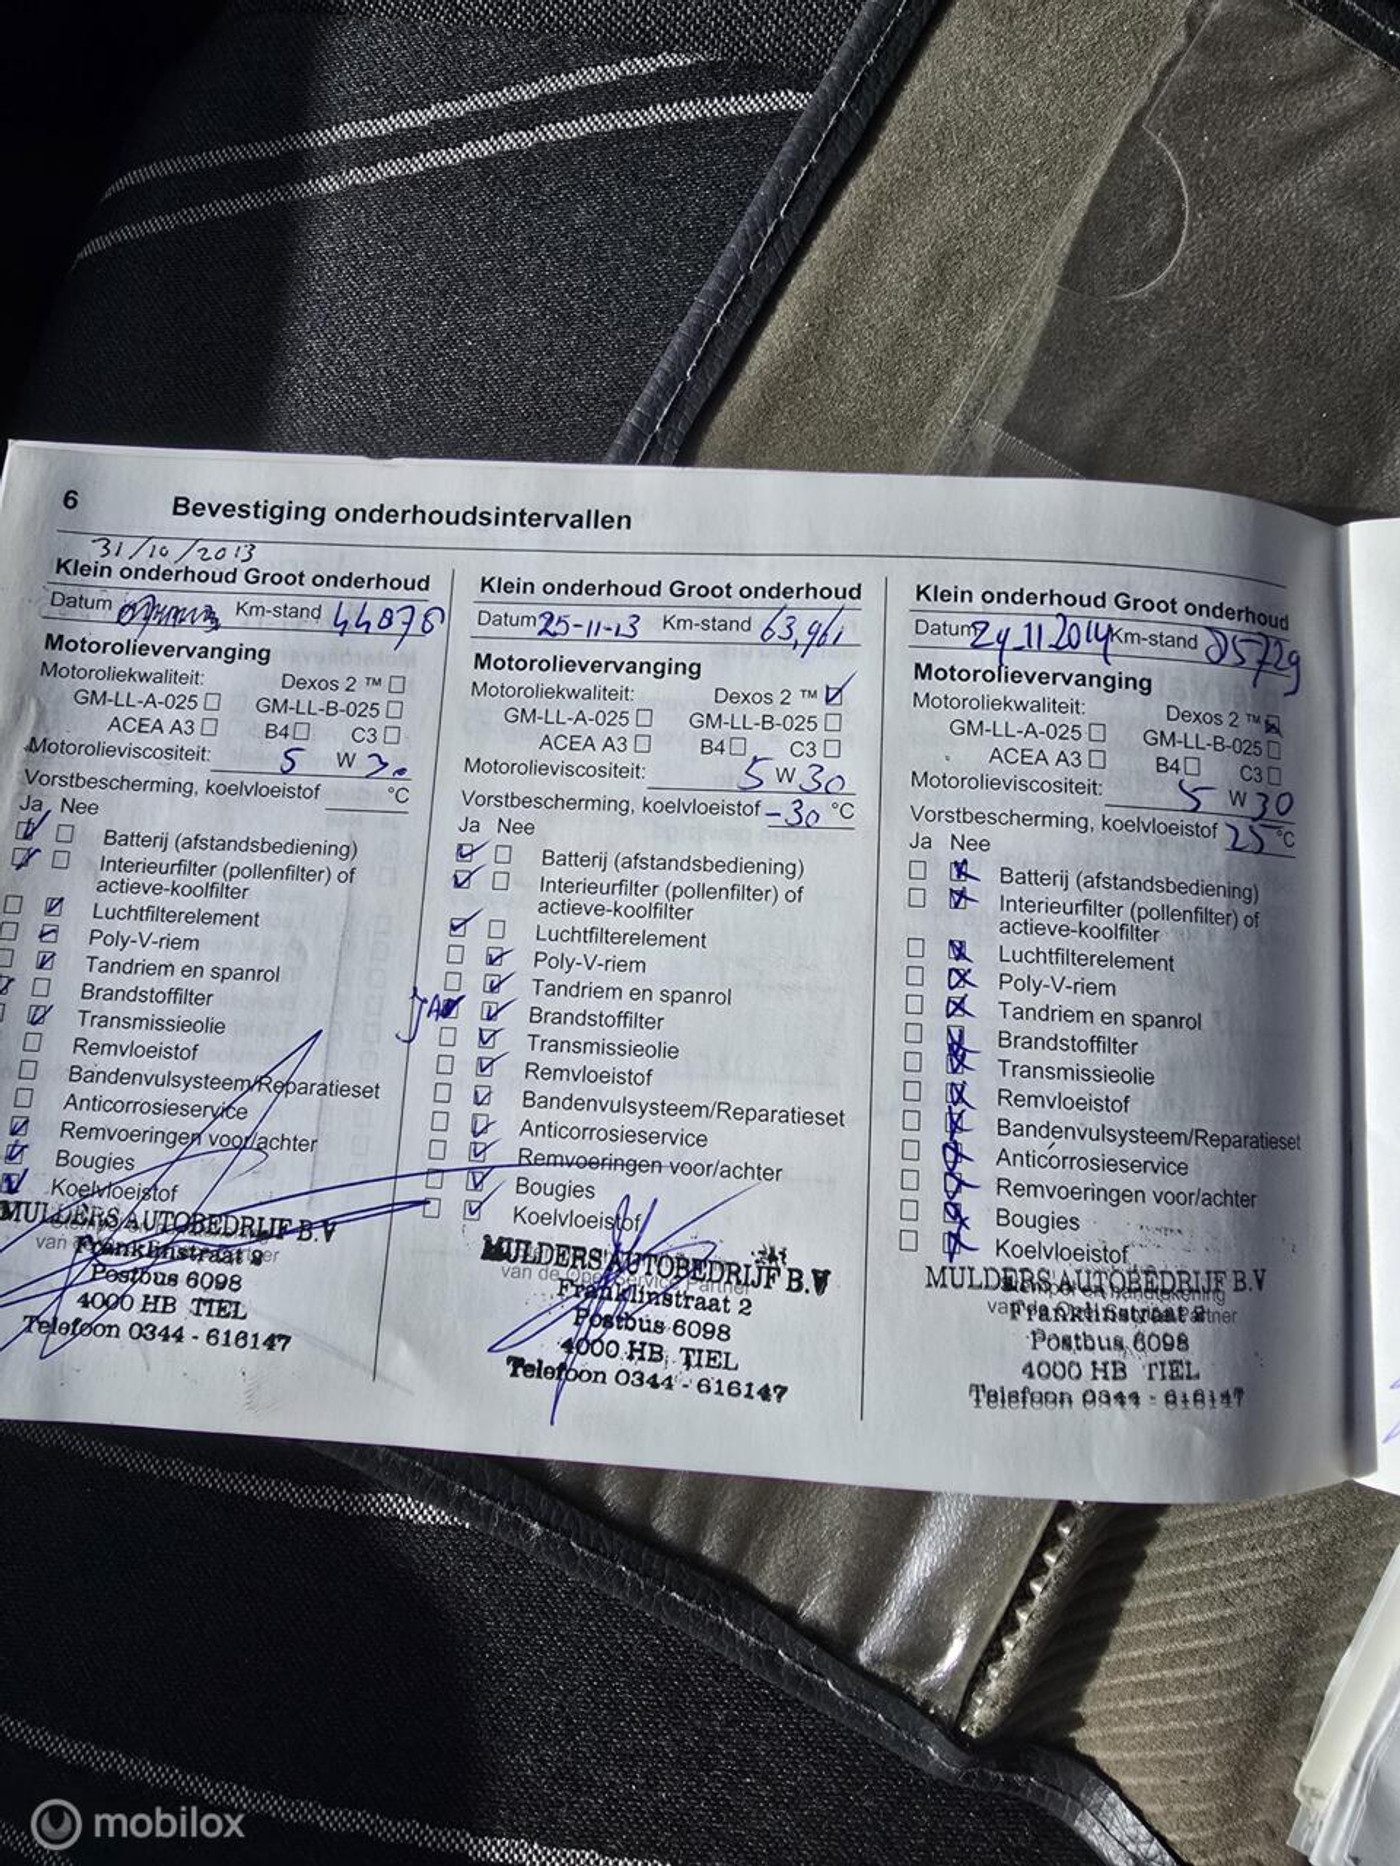 6 Bevestiging onderhoudsintervallen
31/10/2013
Klein onderhoud Groot onderhoud
Datum Km-stand 44878
Motorolievervanging
Motoroliekwaliteit: Dexos 2 ™
GM-LL-A-025 GM-LL-B-025
ACEA A3 B4 C3
Motorolieviscositeit: 5 W 30
Vorstbescherming, koelvloeistof °C
Ja Nee
Batterij (afstandsbediening)
Interieurfilter (pollenfilter) of
actieve-koolfilter
Luchtfilterelement
Poly-V-riem
Tandriem en spanrol
Brandstoffilter
Transmissieolie
Remvloeistof
Bandenvulsysteem/Reparatieset
Anticorrosieservice
Remvoeringen voor/achter
Bougies
Koelvloeistof
MULDERS AUTOBEDRIJF B.V
Franklinstraat 2
Postbus 6098
4000 HB TIEL
Telefoon 0344 - 616147
Klein onderhoud Groot onderhoud
Datum 25-11-13 Km-stand 63,961
Motorolievervanging
Motoroliekwaliteit: Dexos 2 ™
GM-LL-A-025 GM-LL-B-025
ACEA A3 B4 C3
Motorolieviscositeit: 5 W 30
Vorstbescherming, koelvloeistof -30 °C
Ja Nee
Batterij (afstandsbediening)
Interieurfilter (pollenfilter) of
actieve-koolfilter
Luchtfilterelement
Poly-V-riem
Tandriem en spanrol
JA Brandstoffilter
Transmissieolie
Remvloeistof
Bandenvulsysteem/Reparatieset
Anticorrosieservice
Remvoeringen voor/achter
Bougies
Koelvloeistof
MULDERS AUTOBEDRIJF B.V
van de Opel Service Partner
Franklinstraat 2
Postbus 6098
4000 HB TIEL
Telefoon 0344 - 616147
Klein onderhoud Groot onderhoud
Datum 24-11 2014 Km-stand 85729
Motorolievervanging
Motoroliekwaliteit: Dexos 2 ™
GM-LL-A-025 GM-LL-B-025
ACEA A3 B4 C3
Motorolieviscositeit: 5 W 30
Vorstbescherming, koelvloeistof 25 °C
Ja Nee
Batterij (afstandsbediening)
Interieurfilter (pollenfilter) of
actieve-koolfilter
Luchtfilterelement
Poly-V-riem
Tandriem en spanrol
Brandstoffilter
Transmissieolie
Remvloeistof
Bandenvulsysteem/Reparatieset
Anticorrosieservice
Remvoeringen voor/achter
Bougies
Koelvloeistof
MULDERS AUTOBEDRIJF B.V
Franklinstraat 2
Postbus 6098
4000 HB TIEL
Telefoon 0344 - 616147
mobilox